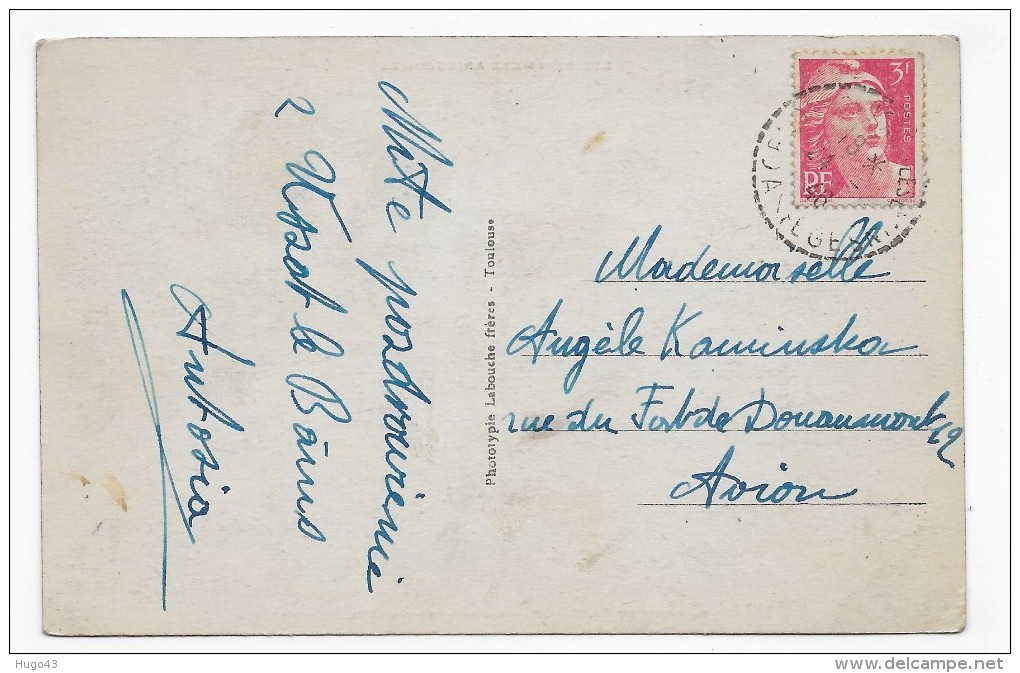 Miłe pozdrowienie
z Ussat le Bains
Antosia
Phototypie Labouche frères - Toulouse
3F
POSTES
RF
Mademoiselle
Angèle Kaminska
rue du Fort de Douaumont 12
Avion
Hugo43
www.delcampe.net